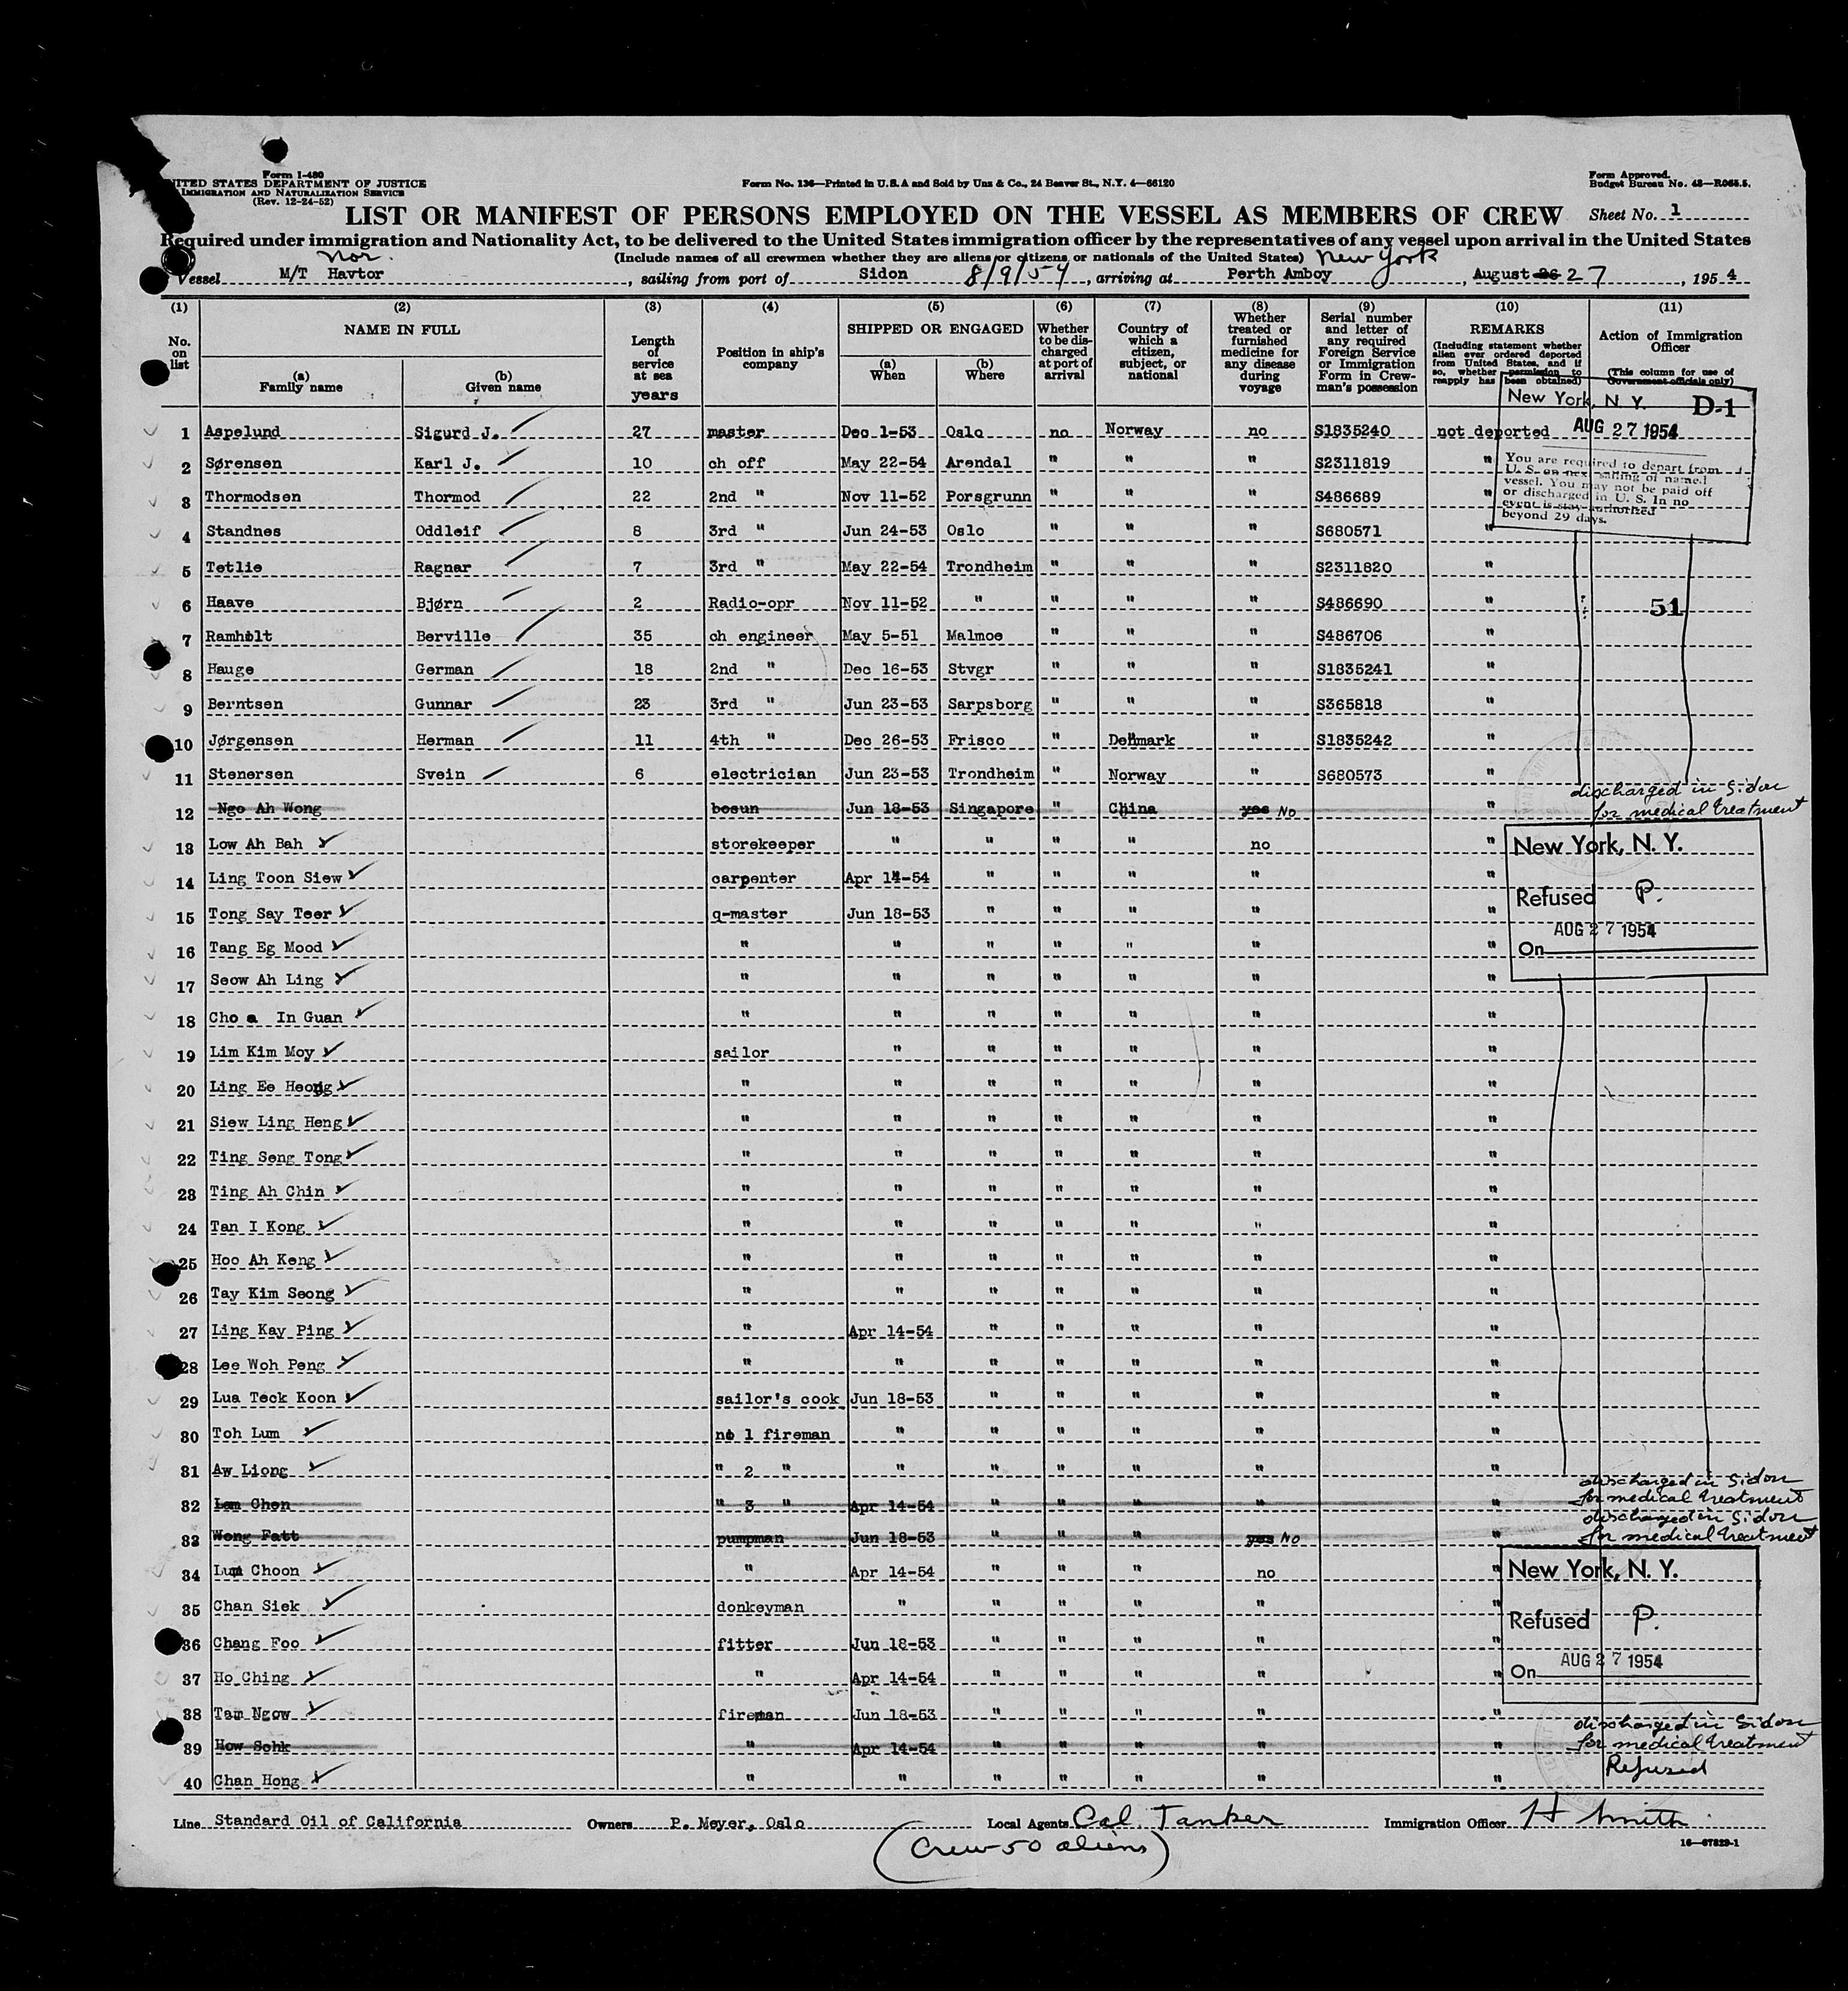 Form I-480
UNITED STATES DEPARTMENT OF JUSTICE
IMMIGRATION AND NATURALIZATION SERVICE
(Rev. 12-24-52)
Form No. 136—Printed in U.S.A and Sold by Unz & Co., 24 Beaver St., N.Y. 4—66120
Form Approved.
Budget Bureau No. 43—R065.5.
LIST OR MANIFEST OF PERSONS EMPLOYED ON THE VESSEL AS MEMBERS OF CREW Sheet No. 1
Required under immigration and Nationality Act, to be delivered to the United States immigration officer by the representatives of any vessel upon arrival in the United States
(Include names of all crewmen whether they are aliens or citizens or nationals of the United States)
Nor. New York
Vessel M/T Havtor, sailing from port of Sidon 8/9/54, arriving at Perth Amboy, August 26 27, 1954
(1) (2) (3) (4) (5) (6) (7) (8) (9) (10) (11)
No. on list
NAME IN FULL
(a) Family name
(b) Given name
Length of service at sea
years
Position in ship's company
SHIPPED OR ENGAGED
(a) When
(b) Where
Whether to be discharged at port of arrival
Country of which a citizen, subject, or national
Whether treated or furnished medicine for any disease during voyage
Serial number and letter of any required Foreign Service or Immigration Form in Crewman's possession
REMARKS
(Including statement whether alien ever ordered deported from United States, and if so, whether permission to reapply has been obtained)
Action of Immigration Officer
(This column for use of Government officials only)
New York, N. Y. D-1
AUG 27 1954
You are required to depart from
U. S. on nex sailing of named
vessel. You may not be paid off
or discharged in U. S. In no
event is stay authorized
beyond 29 days.
1 Aspelund Sigurd J. 27 master Dec 1-53 Oslo no Norway no S1835240 not deported
2 Sørensen Karl J. 10 ch off May 22-54 Arendal " " " S2311819 "
3 Thormodsen Thormod 22 2nd " Nov 11-52 Porsgrunn " " " S486689 "
4 Standnes Oddleif 8 3rd " Jun 24-53 Oslo " " " S680571 "
5 Tetlie Ragnar 7 3rd " May 22-54 Trondheim " " " S2311820 "
6 Haave Bjørn 2 Radio-opr Nov 11-52 " " " " S486690 " 51
7 Ramholt Berville 35 ch engineer May 5-51 Malmoe " " " S486706 "
8 Hauge German 18 2nd " Dec 16-53 Stvgr " " " S1835241 "
9 Berntsen Gunnar 23 3rd " Jun 23-53 Sarpsborg " " " S365818 "
10 Jørgensen Herman 11 4th " Dec 26-53 Frisco " Denmark " S1835242 "
11 Stenersen Svein 6 electrician Jun 23-53 Trondheim " Norway " S680573 "
12 Ngo Ah Wong bosun Jun 18-53 Singapore " China yes No " discharged in Sidon for medical treatment
13 Low Ah Bah storekeeper " " " " no "
New York, N. Y.
Refused P.
AUG 27 1954
On
14 Ling Toon Siew carpenter Apr 14-54 " " " " "
15 Tong Say Teer q-master Jun 18-53 " " " " "
16 Tang Eg Mood " " " " " " "
17 Seow Ah Ling " " " " " " "
18 Cho a In Guan " " " " " " "
19 Lim Kim Moy sailor " " " " " "
20 Ling Ee Heong " " " " " " "
21 Siew Ling Heng " " " " " " "
22 Ting Seng Tong " " " " " " "
23 Ting Ah Chin " " " " " " "
24 Tan I Kong " " " " " " "
25 Hoo Ah Keng " " " " " " "
26 Tay Kim Seong " " " " " " "
27 Ling Kay Ping " Apr 14-54 " " " " "
28 Lee Woh Peng " " " " " " "
29 Lua Teck Koon sailor's cook Jun 18-53 " " " " "
30 Toh Lum no 1 fireman " " " " " "
31 Aw Liong " 2 " " " " " " "
32 Lam Chen " 3 " Apr 14-54 " " " " " discharged in Sidon for medical treatment
33 Wong Fatt pumpman Jun 18-53 " " " yes No " discharged in Sidon for medical treatment
34 Lum Choon " Apr 14-54 " " " no "
New York, N. Y.
Refused P.
AUG 27 1954
On
35 Chan Siek donkeyman " " " " " "
36 Chang Foo fitter Jun 18-53 " " " " "
37 Ho Ching " Apr 14-54 " " " " "
38 Tam Ngow fireman Jun 18-53 " " " " "
39 How Sohk " Apr 14-54 " " " " " discharged in Sidon for medical treatment
40 Chan Hong " " " " " " " Refused
Line Standard Oil of California Owners P. Meyer, Oslo Local Agents Cal. Tanker Immigration Officer H Smith
16—67829-1
(Crew 50 aliens)